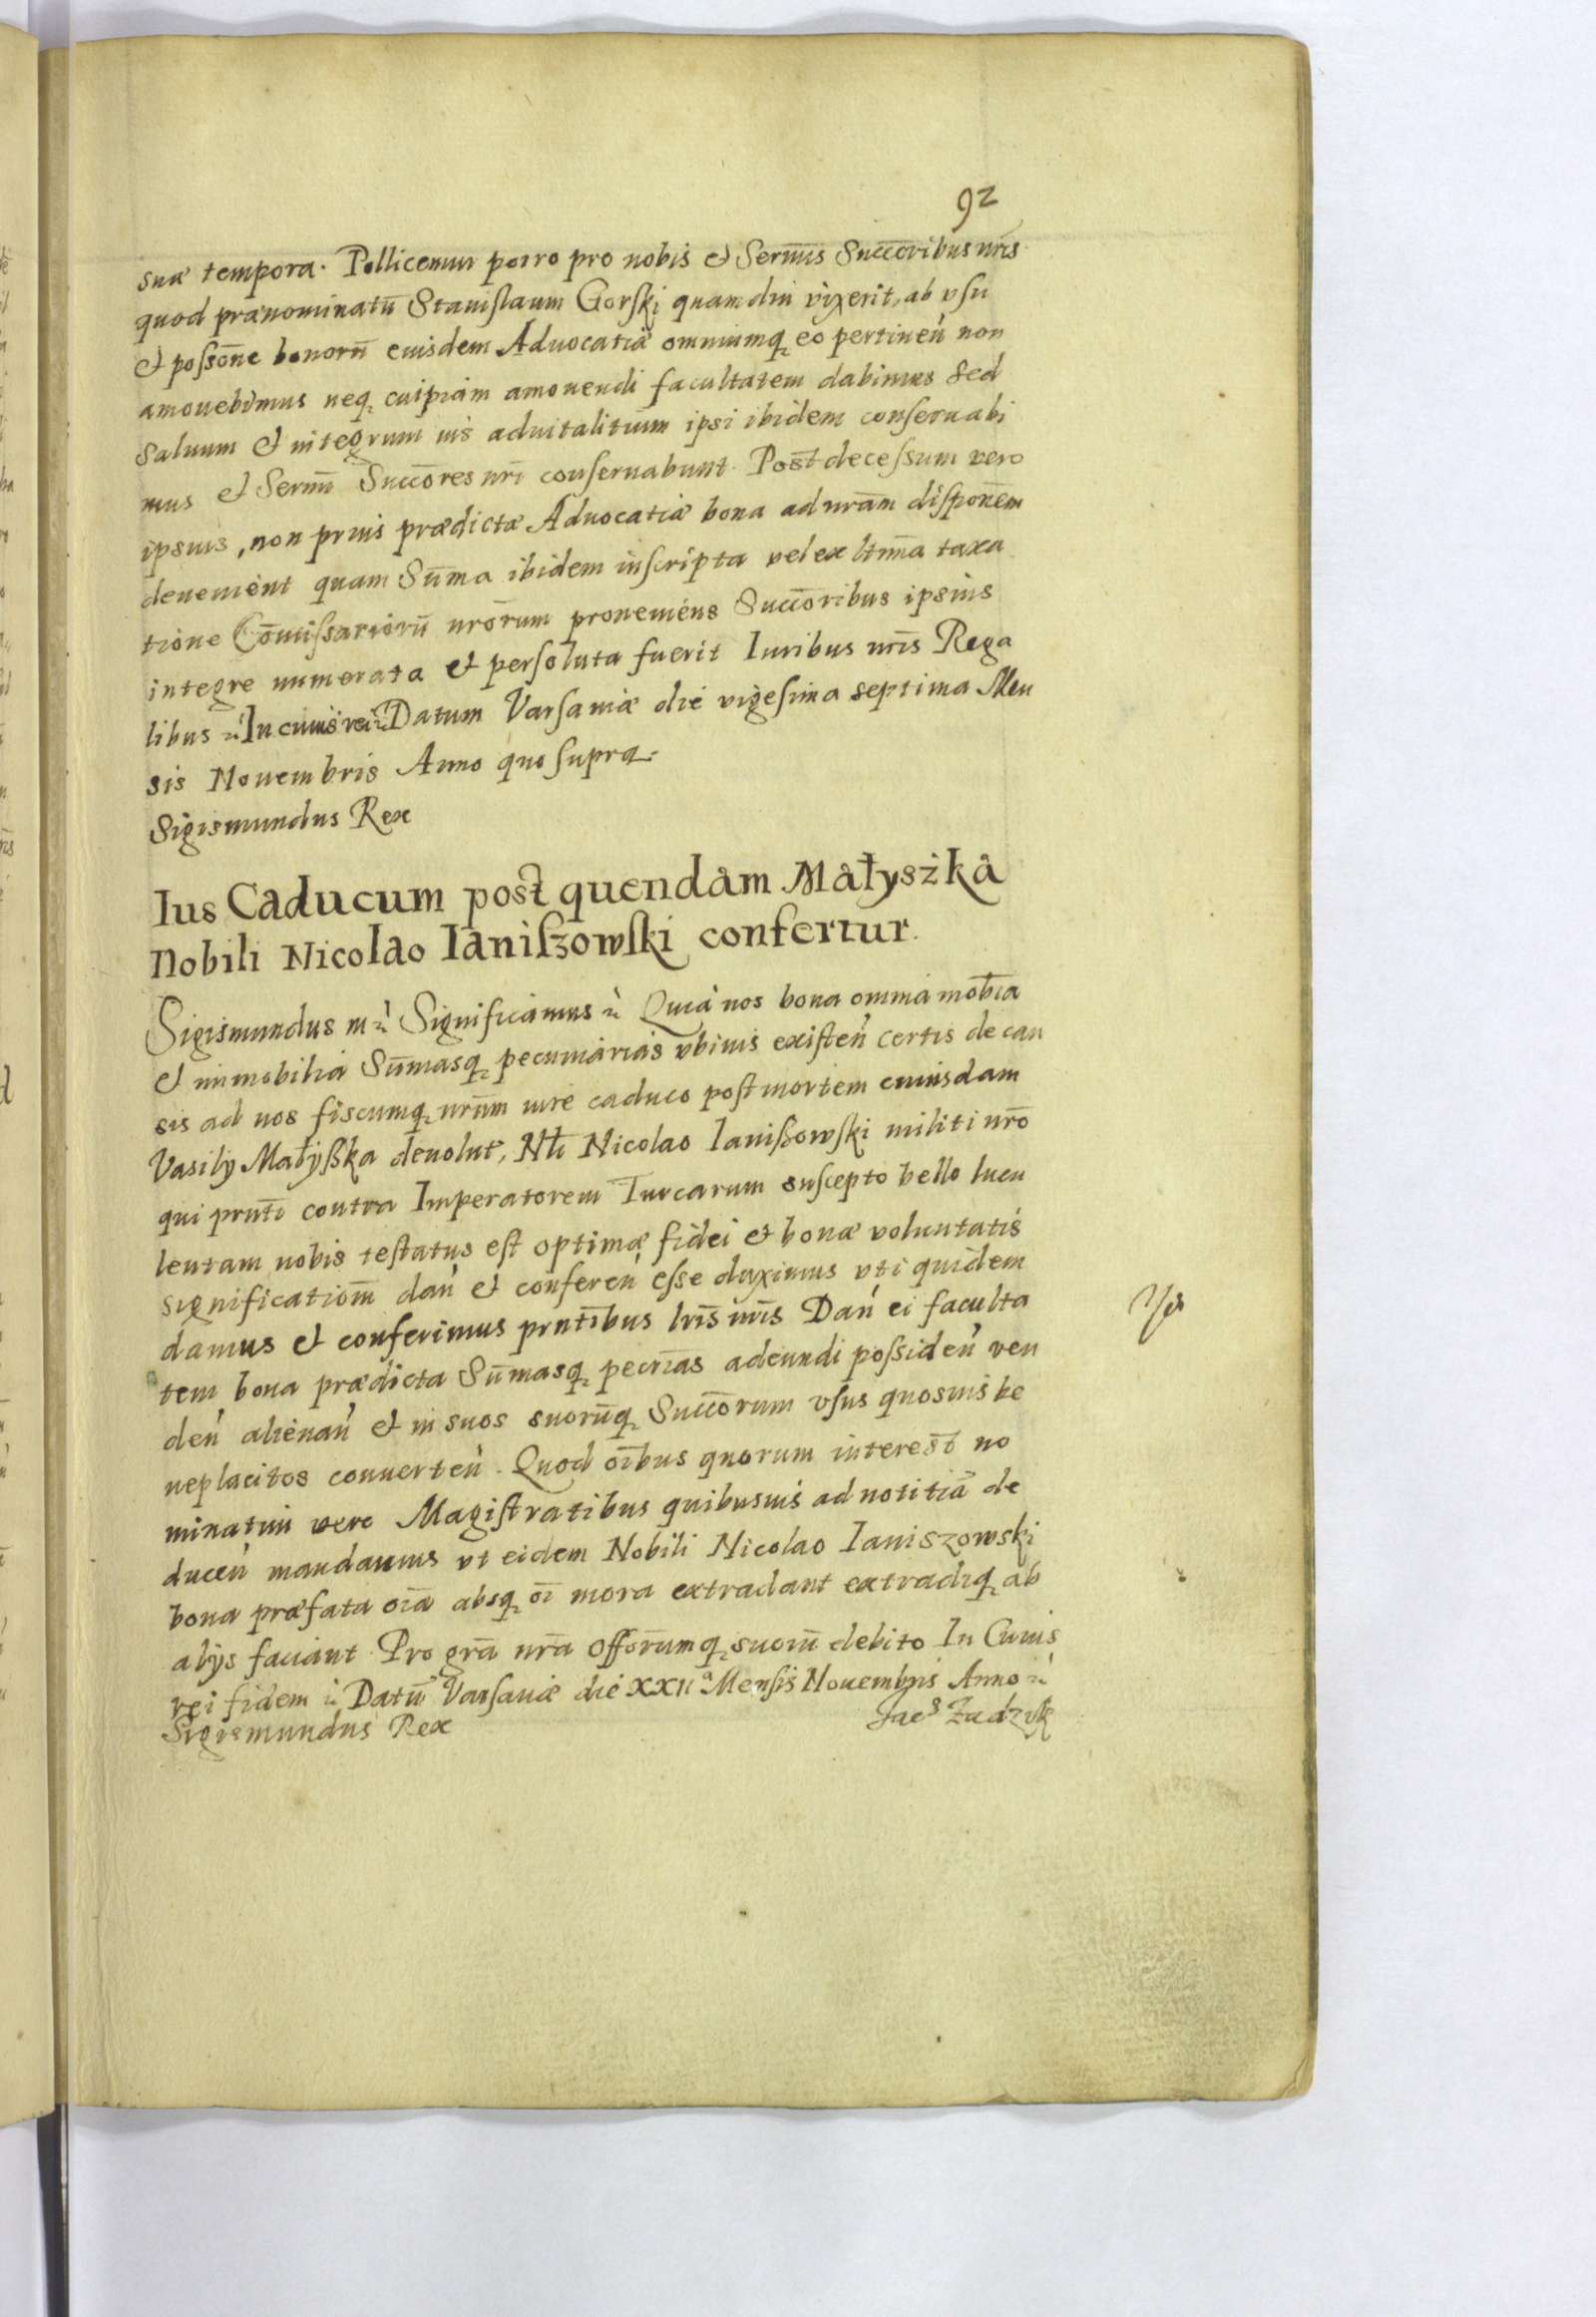 92
suæ tempora. Pollicemur porro pro nobis et Serm̄is Succōribus nr̄is
quod prænominatū Stanislaum Gorski quamdiu vixerit, ab vsu
et possōne bonorū eiusdem Advocatiæ omniumq, eo pertineń non
amouebimus neq, cuipiam amouendi facultatem dabimus Sed
Saluum et integrum ius aduitalitium ipsi ibidem conseruabi
mus et Serm̄i Succōres nr̄i conseruabunt. Post decessum vero
ipsius, non prius prædictæ Aduocatiæ bona ad nrām dispōnem
deuenient quam Sūma ibidem inscripta vel ex ltīma taxa
tione Cōmissariorū nrōrum proueniens Succōribus ipsius
integre numerata et persoluta fuerit Iuribus nr̄is Rega
libus etc In cuius rei etc Datum Varsauiæ die vigesima septima Men
sis Nouembris Anno quo supra.
Sigismundus Rex
Ius Caducum post quendam Małyszka
Nobili Nicolao Ianiszowski confertur.
Sigismundus III etc Significamus etc Quia nos bona omnia mobīa
et immobilia Sūmasq, pecuniarias vbiuis existeń certis de cau
sis ad nos fiscumq, nrūm iure caduco post mortem cuiusdam
Vasily Małyßka deuolut, Nłi Nicolao Ianißowski militi nrō
qui prnti contra Imperatorem Turcarum suscepto bello lucu
lentam nobis testatus est optimæ fidei et bonæ voluntatis
significatiōm dań et confereń esse duximus vti quidem
damus et conferimus prntībus lrīs nr̄is Dań ei faculta
tem bona prædicta Sūmasq, pecrīas adeundi possideń ven
deń alienań et in suos suorūq, Succōrum vsus quosuis be
neplacitos conuerteń. Quod oībus quorum interest no
minatim vero Magistratibus quibusuis ad notitiā de
duceń mandamus vt eidem Nobili Nicolao Ianiszowski
bona præfata oīa absq, oī mora extradant extradiq, ab
alijs faciant Pro grā nrā Offōrumq, suorū debito In Cuius
rei fidem etc Datū Varsauiæ die XXIIa Mensis Nouembris Anno etc
Sigismundus Rex
Jacs Zadzik